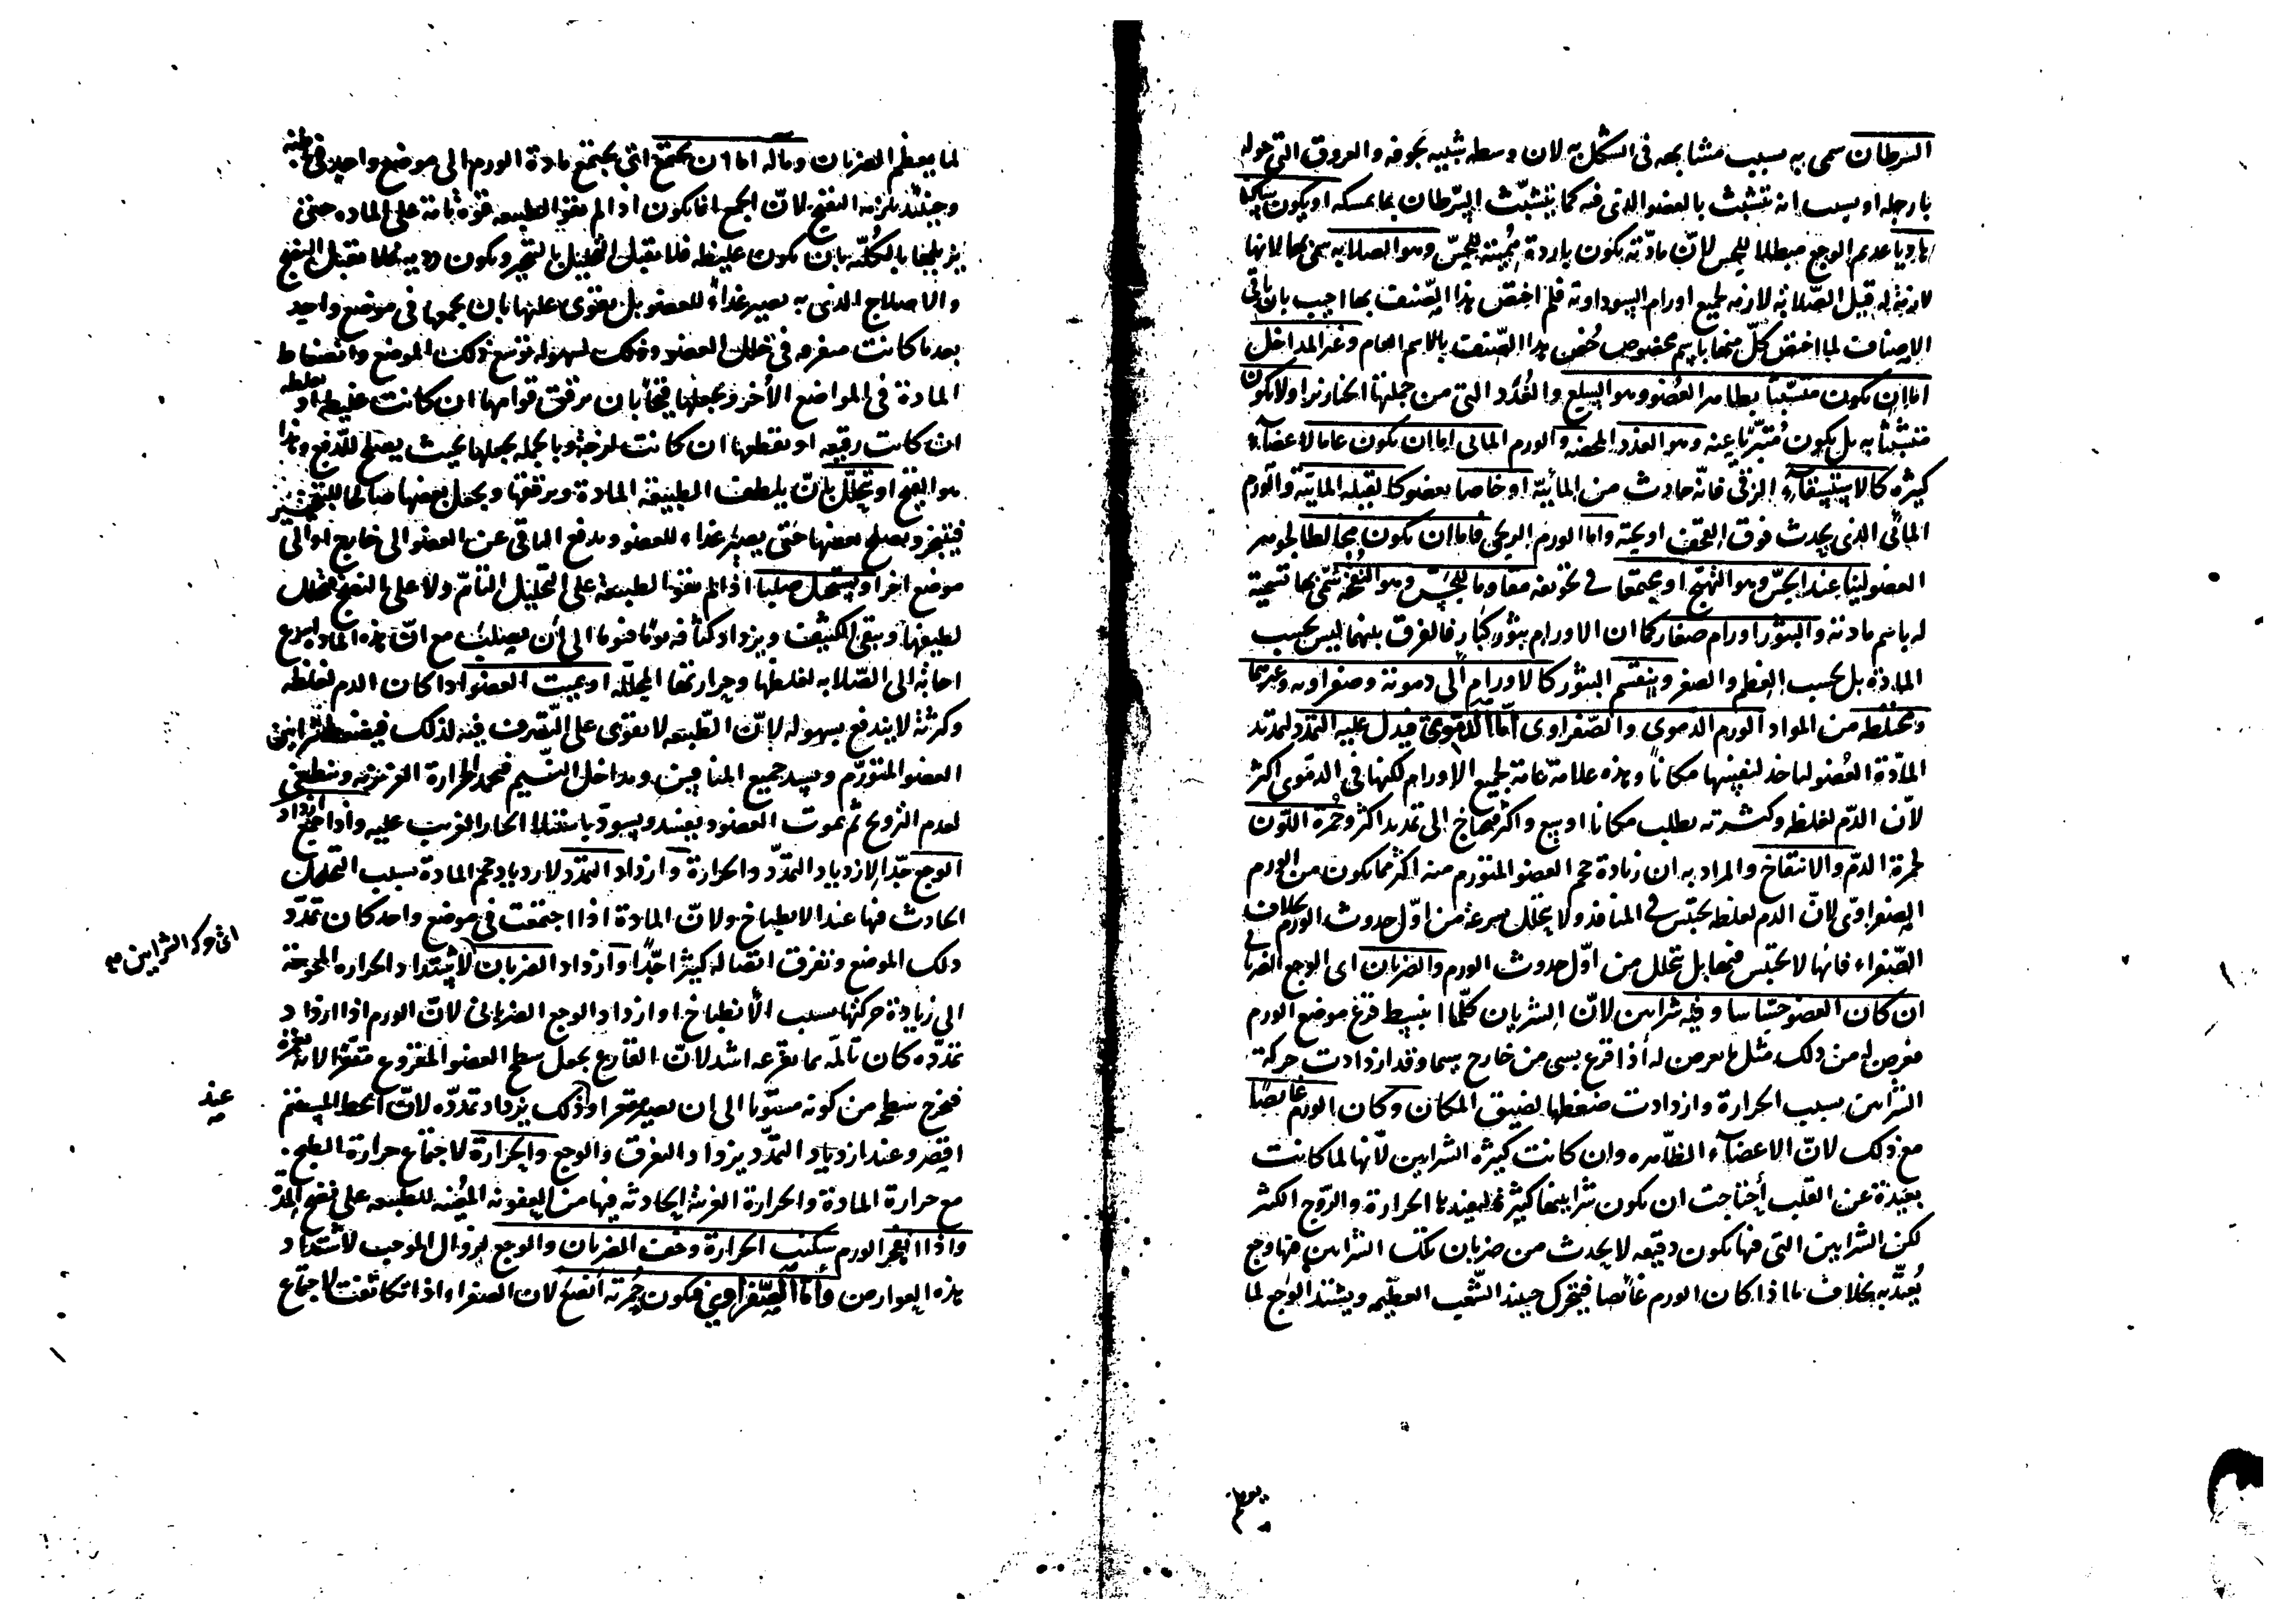 السرطان سمى به بسبب مشابهته فى الشكل به لان وسطه شبيه بجوفه والعروق التى حوله
بارجله او بسبب انه تتشبث بالعضو الذى فيه كما يتشبث السرطان بما يمسكه او يكون ساكنا
هاديا عديم الوجع مبطلا للحس لان مادّته يكون باردة مميتة للحسّ وهو الصلابه سمى بها لانها
لازمة له قيل الصّلابة لازمه لجميع اورام السوداوية فلم اختص هذا الصّنف بها اجيب بان باقى
الاصناف لما اختص كلّ منها باسم مخصوص خُص هذا الصّنف بالاسم العام وغير المداخل
اما ان يكون متشبثا بظاهر العضو وهو السلع والغُدَد التى من جملتها الخنازير او لا يكون
متشبثا به بل يكون مُتبرّيا عنه وهو الغدد المحضه والورم المائى اما ان يكون عاما لاعضآء
كثيره كالاستسقآء الزقّى فانّه حادث من المائيّة او خاصا بعضو كالقيله المائيّة والورم
المائى الذى يحدث فوق القحف او تحته واما الورم الريحى فاما ان يكون مخالطا لجوهر
العضو لينا عند الحسّ وهو التهيّج او مجتمعا فى تجويفه مقاوما للحسّ وهو النفخة سمّى بها تسمية
له باسم مادته والبثور اورام صغار كما ان الاورام بثور كبار فالفرق بينهما ليس بحسب
المادّة بل بحسب العظم والصغر وينقسم البثور كالاورام الى دمويّة وصفراويه وغيرهما
ومختلطه من المواد الورم الدموى والصّفراوى امّا الدّموى فيدل عليه التمدّد لتمديد
المادّة العُضو لتاخذ لنفسها مكاناً وهذه علامة عامة لجميع الاورام لكنها فى الدّموى اكثر
لانّ الدّم لغلظه وكثرته يطلب مكانا اوسع واكثر فيحتاج الى تمديد اكثر وحُمرة اللّون
لحمرة الدّم والانتفاخ والمراد به ان زيادة حجم العضو المتورم منه اكثر مما يكون من الورم
الصفراوىّ لانّ الدم لغلظه يحتبس فى المنافذ ولا يتحلل بسرعة من اوّل حدوث الورم بخلاف
الصّفراء فانّها لا تحتبس فيها بل تتحلل من اوّل حدوث الورم والضربان اى الوجع الضربانى
ان كان العضو حسّاسا وفيه شرايين لانّ الشريان كلّما انبسط قرع موضع الورم
فعرض له من ذلك مثل ما يعرض له اذا قرع بشى من خارج سيما وقد ازدادت حركة
الشرايين بسبب الحرارة وازدادت ضغطها لضيق المكان وكان الورم غايصًا
مع ذلك لانّ الاعضآء الظّاهره وان كانت كثيره الشرايين لانّها لما كانت
بعيدة عن القلب أحتاجت ان يكون شرايينها كثيرة ليفيدها الحرارة والرّوح الكثير
لكن الشرايين التى فيها يكون دقيقه لا يحدث من ضربان تلك الشرايين فيها وجع
يُعتدّ به بخلاف ما اذا كان الورم غائصا فيتحرك حينئذ الشّعب العظيمه ويشتدّ الوجع لما
يعظم
لما يعظم الضربان وماله اما ان يجتمع اى يجتمع مادة الورم الى موضع واحد فى باطنه
وحينئذ يلزمه النضج لانّ الجمع انما يكون اذا لم يقو الطبيعه قوّة تامّة على الماده حتى
يزيلها بالكليّه بان يكون غليظه فلا يقبل التحليل بالتبخير ويكون رديه فلا يقبل النضج
والاصلاح الذى به يصير غذاءً للعضو بل يقوى عليها بان يجمعها فى موضع واحد
بعد ما كانت متفرقه فى خلل العضو وذلك لسهوله توسّع ذلك الموضع وانضغاط
المادّة فى المواضع الأُخر ويجعلها قيحًا بان يرقق قوامها ان كانت غليظه او يغلظه
ان كانت رقيقه او يقطعها ان كانت لزجة وبالجمله يجعلها بحيث يصلح للدّفع وهذا
هو النضج او يتحلّل بانّ يلطف الطبيعة المادة ويرققها ويجعل بعضها صالحا للتبخير
فيتبخر ويصلح بعضها حتى يصير غذاء للعضو ويدفع الباقى عن العضو الى خارج او الى
موضع اخر او يستحيل صلبا اذا لم يقو الطبيعة على التحليل التامّ ولا على النضج فيتحلل
لطيفها ويبقى الكثيف ويزداد كثافه يومًا فيوما الى أن يصلب مع انّ هذه المادة اسرع
اجابة الى الصّلابه لغلظها وحرارتها المحلّله او يميت العضو اذا كان الدم لغلظه
وكثرته لا يندفع بسهوله لانّ الطّبيعه لا يقوى على التّصرف فيه لذلك فيضغط شرايين
العضو المتورّم ويسد جميع المنافس ومداخل النسيم فيخمد الحرارة الغريزيه وينطفى
لعدم الترويح ثم يموت العضو ويفسد ويسودّ باستيلا الحار الغريب عليه واذا جمع ازداد
الوجع جدّا لازدياد التمدّد والحرارة وازداد التمدّد لازدياد حجم المادة بسبب التخلخل
الحادث فيها عند الانطباخ ولانّ المادة اذا اجتمعت فى موضع واحد كان تمدّد
ذلك الموضع وتفرق اتصاله كثيرًا جدًّا وازداد الضربان لاشتداد الحراره المحوجة
الى زيادة حركتها بسبب الانطباخ او ازداد الوجع الضربانى لانّ الورم اذا ازداد
تمدّده كان تالمّه بما يقرعه اشد لانّ القارع يجعل سطح العضو المقروع مقعّرا لانه يغمزه
فيخرج سطحه من كونه مستويا الى ان يصير مقعرا وذلك يزداد تمدّده لانّ الخط المستقيم
اقصر وعند ازدياد التمدّد يزداد التفرق والوجع والحرارة لاجتماع حرارة الطبخ
مع حرارة المادة والحرارة الغريبة الحادثه فيها من العفونه المعُينه للطبيعه على نضج المدّة
واذا انفجر الورم سكنت الحرارة وخف الضربان والوجع لزوال الموجب لاشتداد
هذه العوارض وأمّا الصّفراوى فيكون حُمرته أنصع لان الصفرا واذا تكاثفت لاجتماع
اى حركة الشرايين
عند